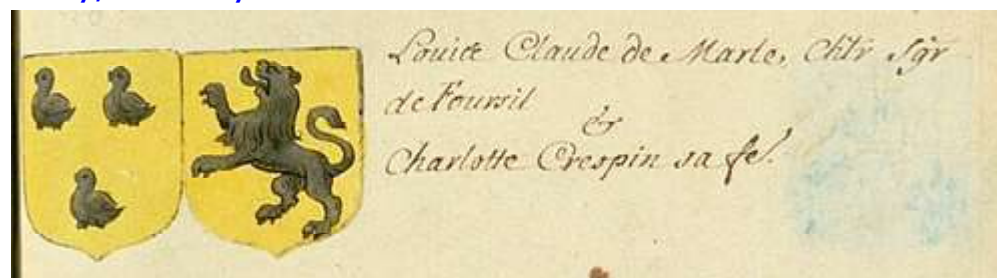 Louis Claude de Marle, Chlr Sgr
de Foursil
&
Charlotte Crespin sa fe.